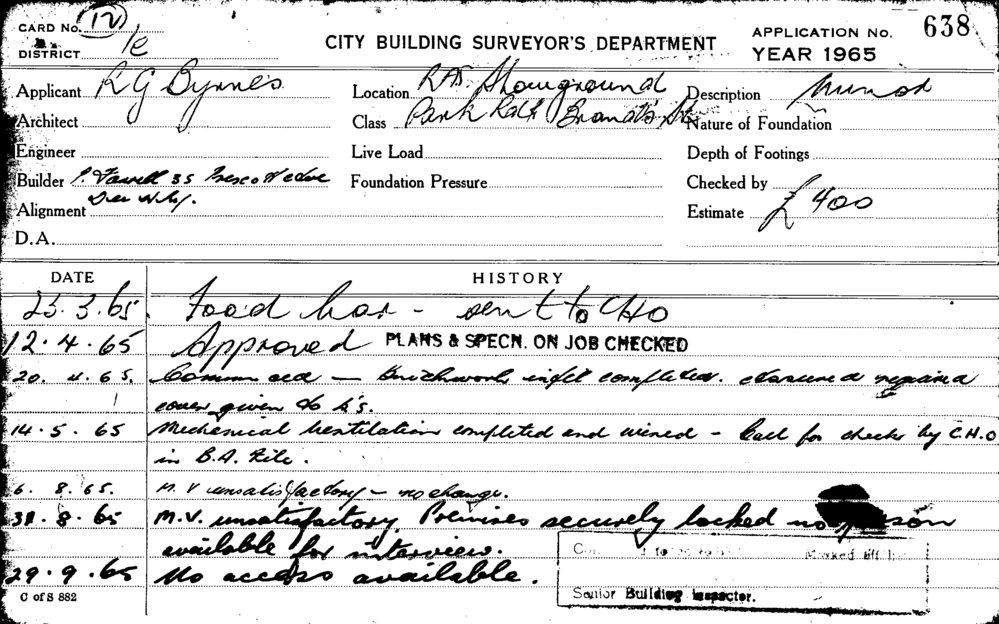 CARD No. 12
DISTRICT /e
CITY BUILDING SURVEYOR'S DEPARTMENT
APPLICATION No. 638
YEAR 1965
Applicant R G Byrnes
Location RAS Showground
Description Minor
Architect
Class Park Rd
Nature of Foundation
Engineer
Live Load
Depth of Footings
Builder P. 35
Foundation Pressure
Checked by
Alignment
Estimate £ 400
D.A.
DATE HISTORY
23.3.65. Food bar - sent to CHO
12.4.65 Approved PLANS & SPECN. ON JOB CHECKED
20. 4. 65. - Brickwork completed.
cover given to
14.5.65 Mechanical Ventilation completed and wired - Call for check by C.H.O
in B.A. File.
6. 8. 65. M.V unsatisfactory - no change.
31.8.65 M.V. unsatisfactory. Premises securely locked no person
available for interview.
29.9.65 No access available.
C of S 882
Senior Building Inspector.